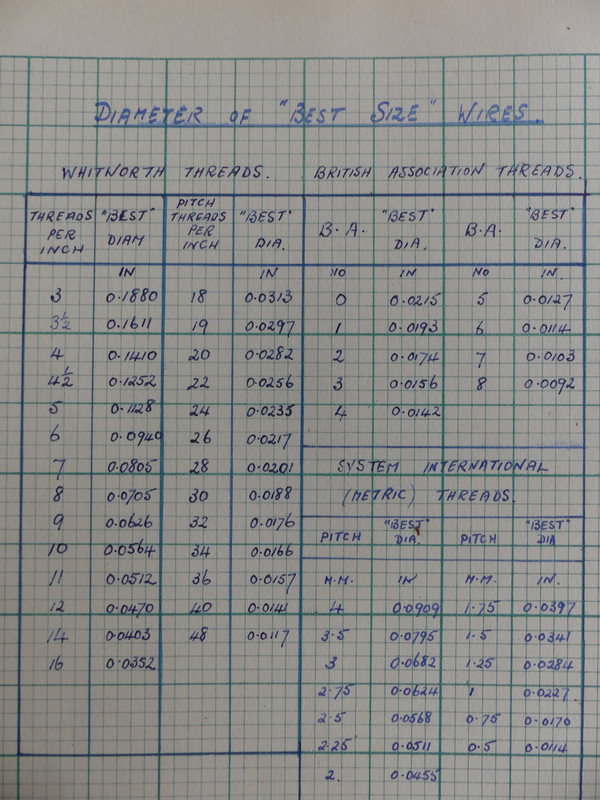 DIAMETER OF "BEST SIZE" WIRES.
WHITWORTH THREADS.
THREADS PER INCH "BEST" DIAM PITCH THREADS PER INCH "BEST" DIA.
IN IN
3 0.1880 18 0.0313
3½ 0.1611 19 0.0297
4 0.1410 20 0.0282
4½ 0.1252 22 0.0256
5 0.1128 24 0.0235
6 0.0940 26 0.0217
7 0.0805 28 0.0201
8 0.0705 30 0.0188
9 0.0626 32 0.0176
10 0.0564 34 0.0166
11 0.0512 36 0.0157
12 0.0470 40 0.0141
14 0.0403 48 0.0117
16 0.0352
BRITISH ASSOCIATION THREADS.
B.A. "BEST" DIA. B.A. "BEST" DIA.
NO IN NO IN.
0 0.0215 5 0.0127
1 0.0193 6 0.0114
2 0.0174 7 0.0103
3 0.0156 8 0.0092
4 0.0142
SYSTEM INTERNATIONAL
(METRIC) THREADS.
PITCH "BEST" DIA. PITCH "BEST" DIA
M.M. IN M.M. IN.
4 0.0909 1.75 0.0397
3.5 0.0795 1.5 0.0341
3 0.0682 1.25 0.0284
2.75 0.0624 1 0.0227
2.5 0.0568 0.75 0.0170
2.25 0.0511 0.5 0.0114
2. 0.0455